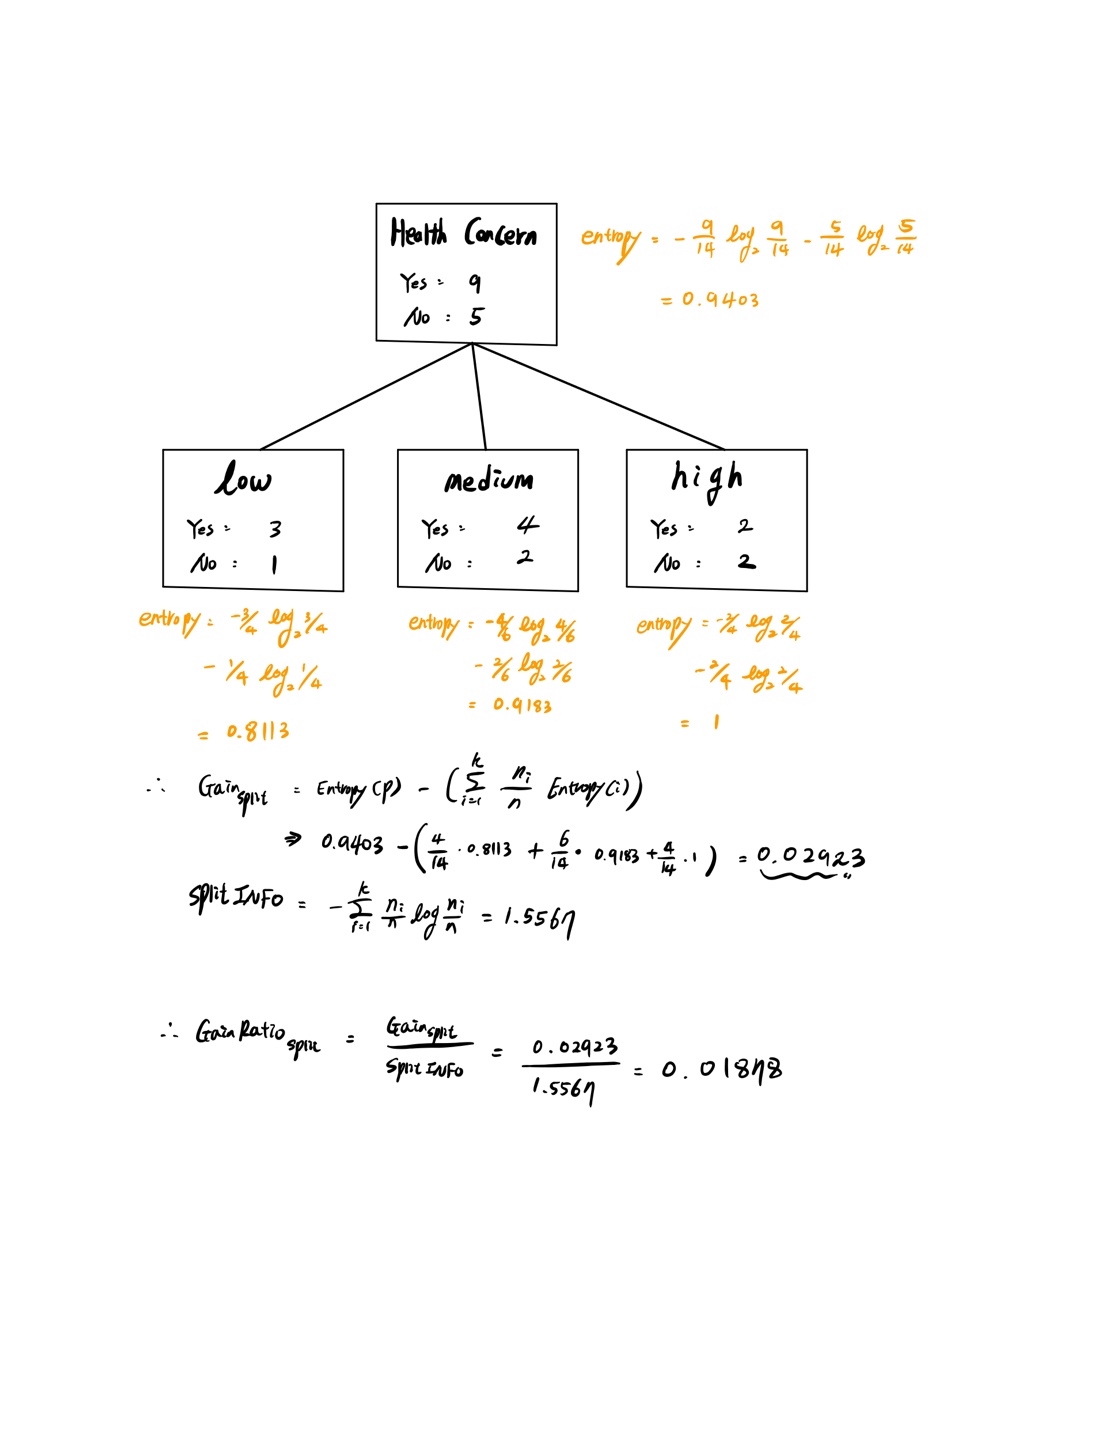 Health Concern
Yes : 9
No : 5
entropy = - 9/14 log₂ 9/14 - 5/14 log₂ 5/14
= 0.9403
low
Yes : 3
No : 1
medium
Yes : 4
No : 2
high
Yes : 2
No : 2
entropy = -3/4 log₂ 3/4
- 1/4 log₂ 1/4
= 0.8113
entropy = -4/6 log₂ 4/6
- 2/6 log₂ 2/6
= 0.9183
entropy = -2/4 log₂ 2/4
- 2/4 log₂ 2/4
= 1
∴ Gain split = Entropy(p) - (∑ᵢ₌₁ᵏ nᵢ/n Entropy(i))
⇒ 0.9403 - (4/14 · 0.8113 + 6/14 · 0.9183 + 4/14 · 1) = 0.02923
Split INFO = - ∑ᵢ₌₁ᵏ nᵢ/n log nᵢ/n = 1.5567
∴ Gain Ratio split = Gain split / Split INFO = 0.02923 / 1.5567 = 0.01878